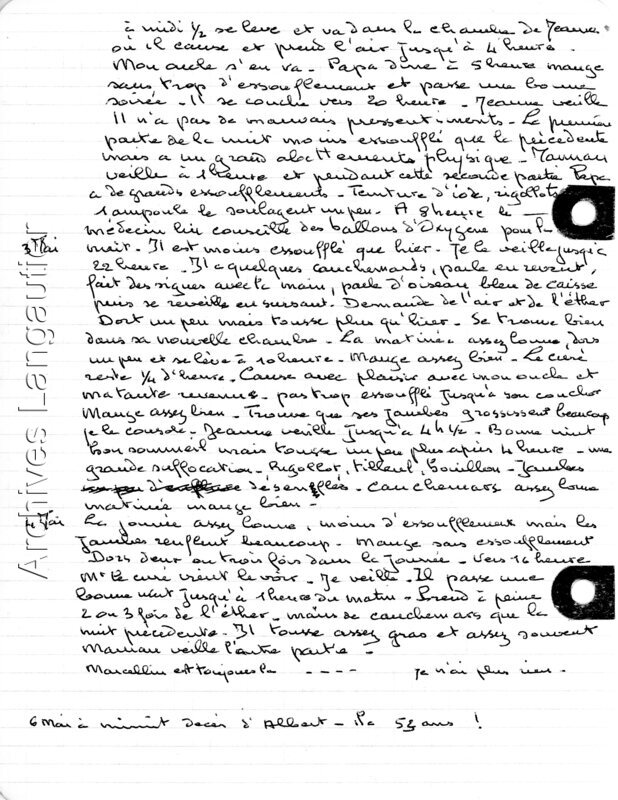 à midi ½ se leve et va dans la chambre de Jeanne
où il cause et prend l'air jusqu'à 4 heure.
Mon oncle s'en va - Papa dine à 5 heure mange
sans trop d'essoufflement et passe une bonne
soirée - Il se couche vers 20 heure - Jeanne veille
Il n'a pas de mauvais pressentiments - La première
partie de la nuit moins essoufflé que la précédente
mais a un grand abattements physique - Maman
veille à 1 heure et pendant cette seconde partie Papa
a de grands essoufflements - Teinture d'iode, rigollots
1 ampoule le soulagent un peu. A 8 heure le
3 Mai
médecin lui conseille des ballons d'Oxygène pour la
nuit - Il est moins essoufflé que hier. Je le veille jusqu'à
22 heure - Il a quelques cauchemards, parle en revant,
fait des signes avec la main, parle d'oiseau bleu de caisse
puis se reveille en sursaut. Demande de l'air et de l'éther
Dort un peu mais tousse plus qu'hier - Se trouve bien
dans sa nouvelle chambre - La matinée assez bonne, dors
un peu et se lève à 10 heure - Mange assez bien - Le curé
reste ¼ d'heure - Cause avec plaisir avec mon oncle et
ma tante revenus - pas trop essoufflé jusqu'à son coucher
Mange assez bien - Trouve que ses jambes grossissent beaucoup
je le console - Jeanne veille jusqu'à 4 h ½ - Bonne nuit
bon sommeil mais tousse un peu plus après 4 heure - une
grande suffocation - Rigollot, tilleul, bouillon - Jambes
désenflés - cauchemars assez bonne
matinée mange bien -
4 Mai
La journée assez bonne, moins d'essoufflement mais les
jambes renflent beaucoup - Mange sans essoufflement
Dors deux ou trois fois dans la journée - Vers 16 heure
Mr Le curé vient le voir - Je veille - Il passe une
bonne nuit jusqu'à 1 heure du matin - Prend à peine
2 ou 3 fois de l'éther - moins de cauchemars que la
nuit précédente - Il tousse assez gras et assez souvent
Maman veille l'autre partie -
Marcellin est toujours là - - - - je n'ai plus rien -
6 Mai à minuit décès d'Albert - 53 ans !
Archives Langautier